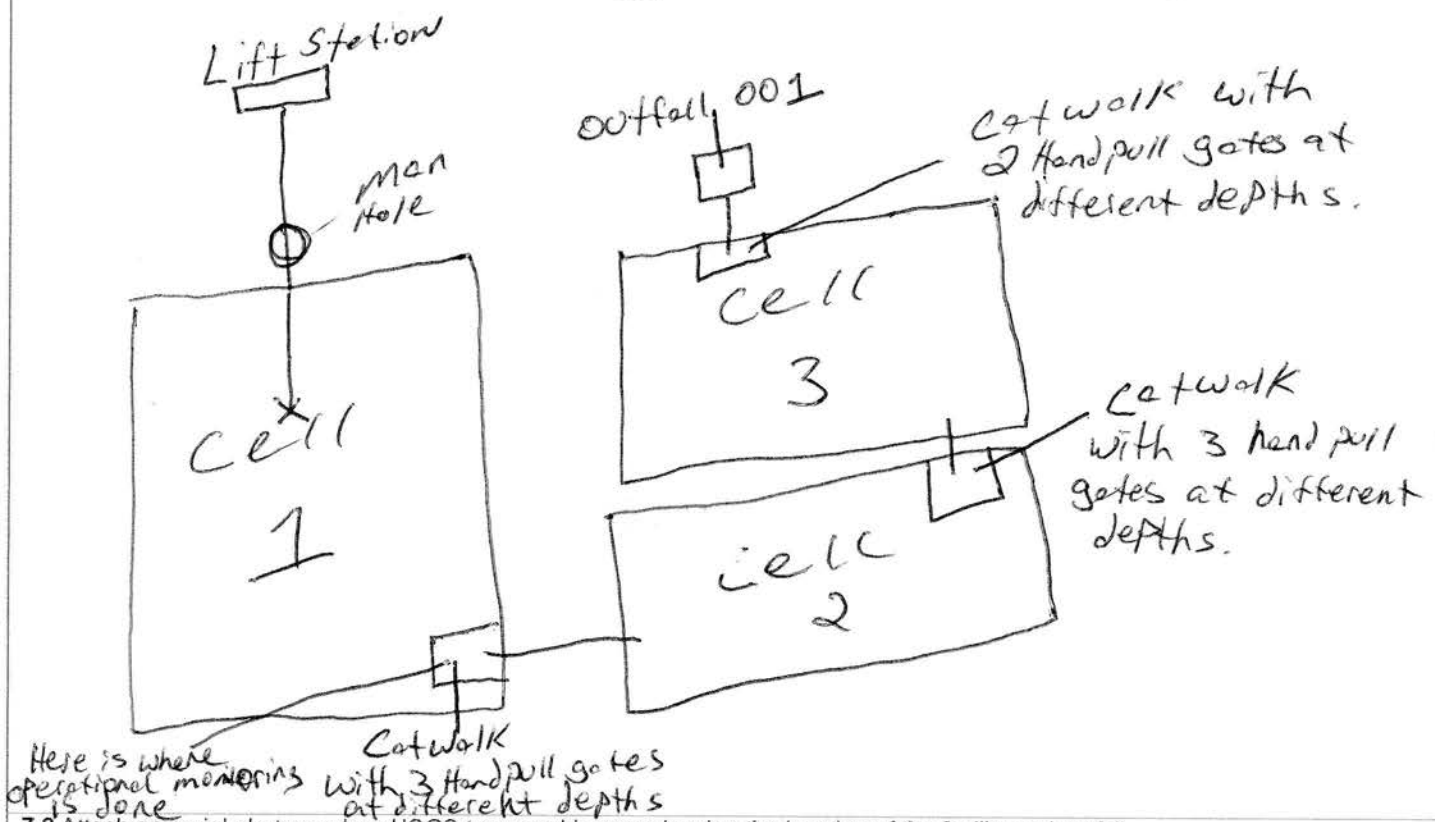 Lift Station
Man
Hole
Outfall 001
Catwalk with
2 Hand pull gates at
different depths.
Cell
3
Catwalk
with 3 hand pull
gates at different
depths.
Cell
1
Cell
2
Here is where
operational monitoring
is done
Catwalk
with 3 Hand pull gates
at different depths